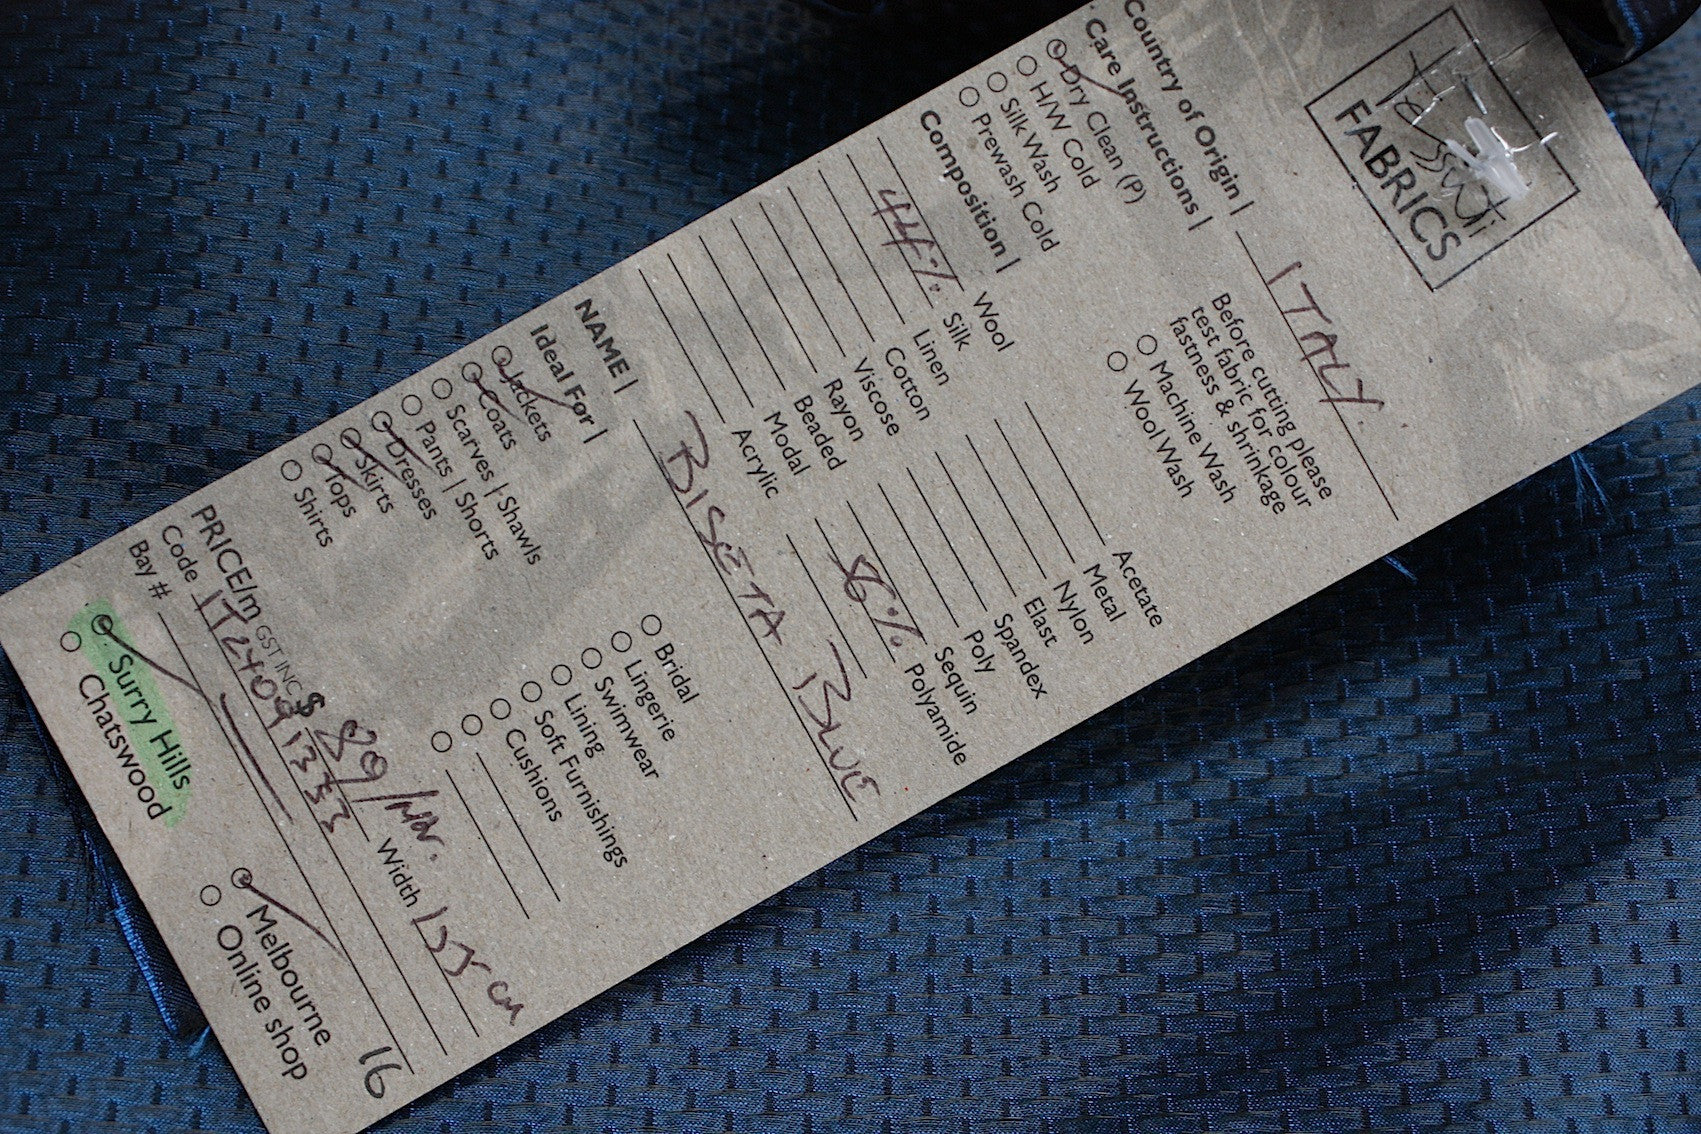 Tessuti
FABRICS
Country of Origin | ITALY
Care Instructions |
Before cutting please
test fabric for colour
fastness & shrinkage
Dry Clean (P)
H/W Cold
Silk Wash
Prewash Cold
Machine Wash
Wool Wash
Composition |
Wool
44% Silk
Linen
Cotton
Viscose
Rayon
Beaded
Modal
Acrylic
Acetate
Metal
Nylon
Elast
Spandex
Poly
Sequin
56% Polyamide
NAME | BISETA BLUE
Ideal For |
Jackets
Coats
Scarves | Shawls
Pants | Shorts
Dresses
Skirts
Tops
Shirts
Bridal
Lingerie
Swimwear
Lining
Soft Furnishings
Cushions
PRICE/m GST INC $ 89/ Width 155 cm
Code IT24091333
Bay # 16
Surry Hills
Chatswood
Melbourne
Online shop